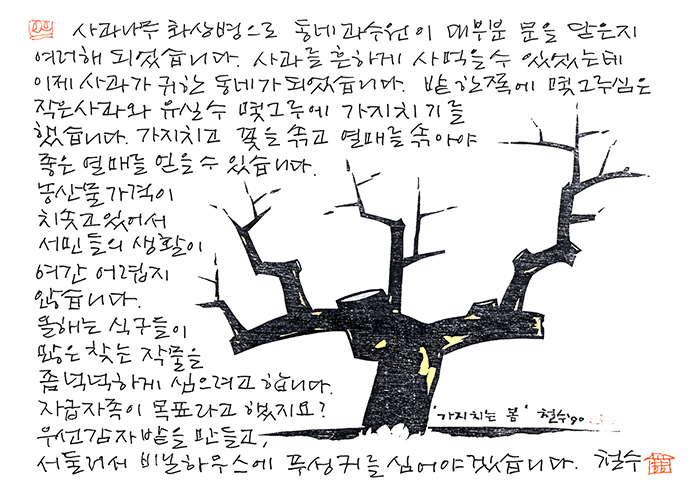 사과나무 화상병으로 동네 과수원이 대부분 문을 닫은지
여러해 되었습니다. 사과를 흔하게 사먹을 수 있었는데
이제 사과가 귀한 동네가 되었습니다. 밭 한쪽에 몇그루 심은
작은사과와 유실수 몇그루에 가지치기를
했습니다. 가지치고 꽃을 솎고 열매를 솎아야
좋은 열매를 얻을 수 있습니다.
농산물가격이
치솟고 있어서
서민들의 생활이
여간 어렵지
않습니다.
올해는 식구들이
많은 찾는 작물을
좀 넉넉하게 심으려고 합니다.
자급자족이 목표라고 했지요?
우선 감자밭을 만들고,
서둘러서 비닐하우스에 푸성귀를 심어야겠습니다. 철수
'가지치는 봄' 철수 '90